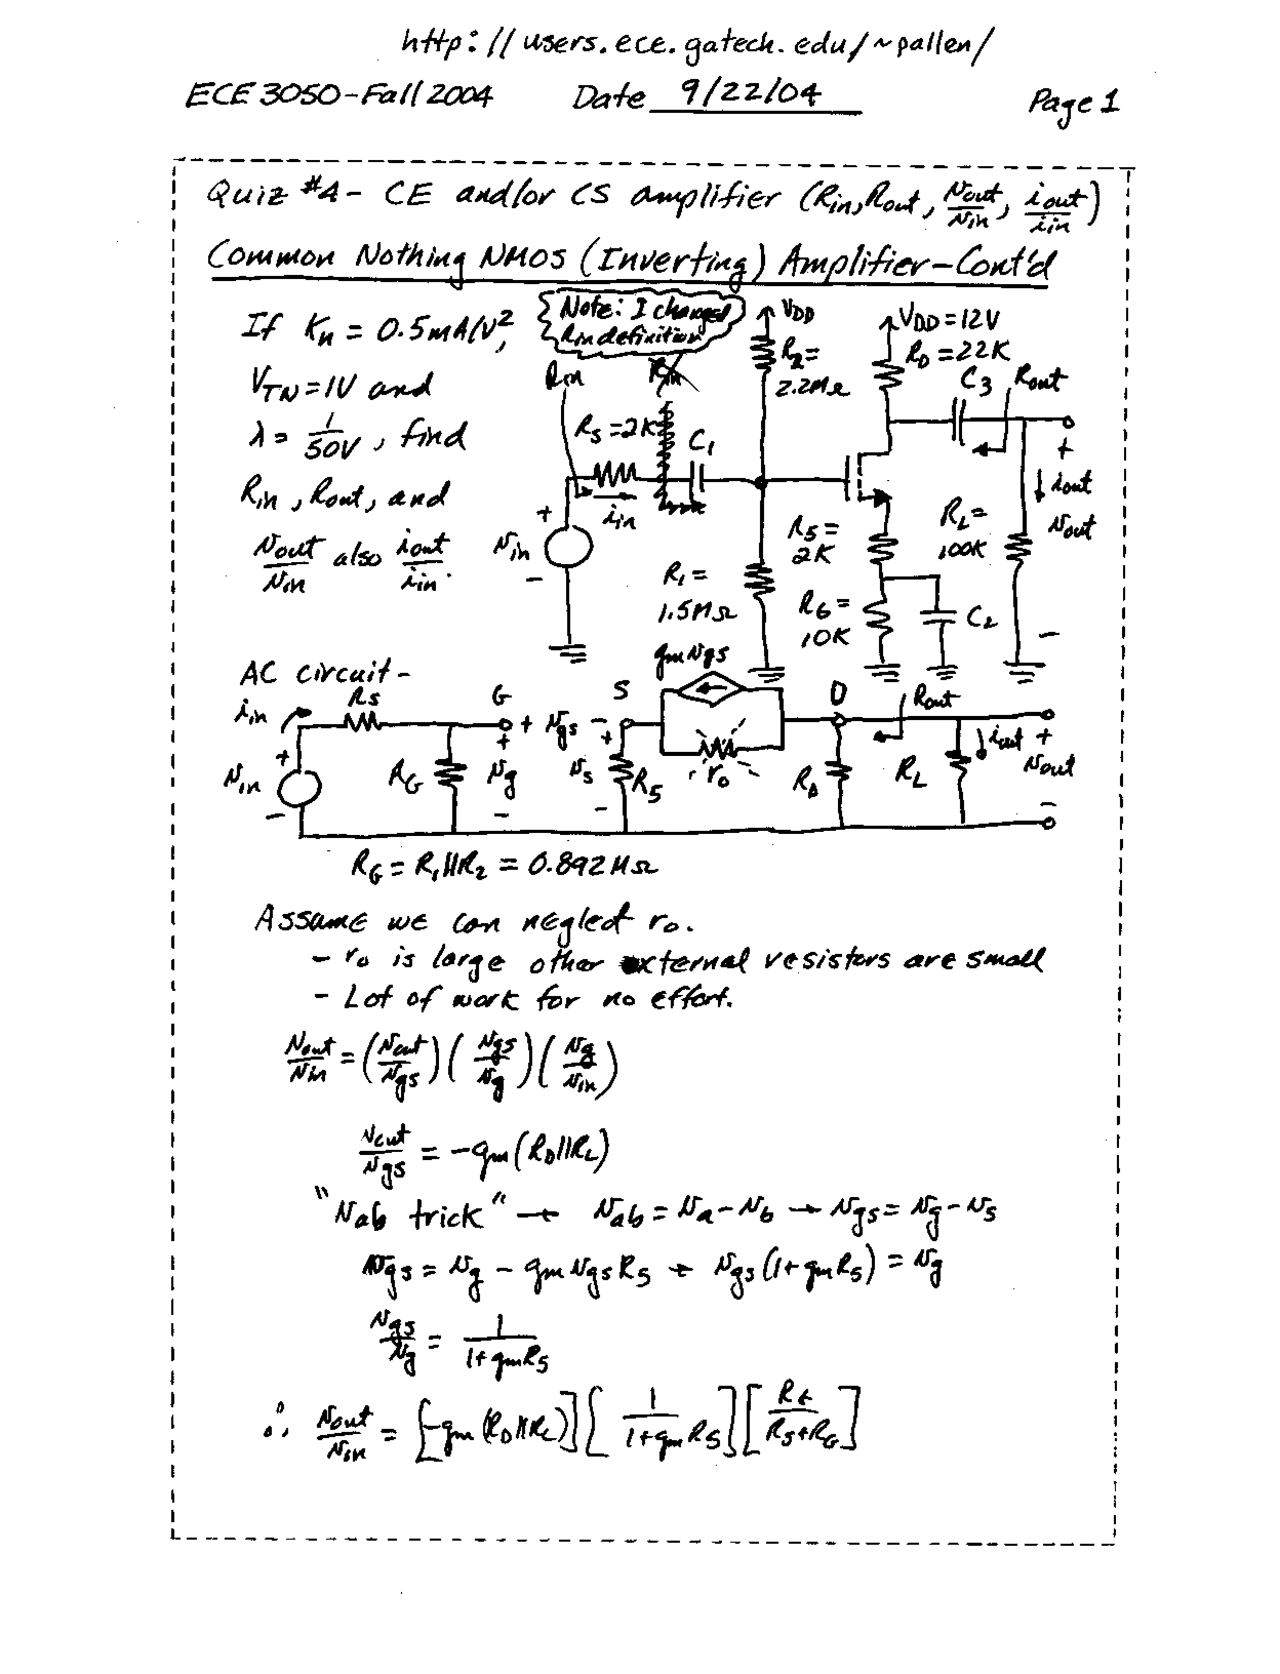 http://users.ece.gatech.edu/~pallen/
ECE 3050-Fall 2004 Date 9/22/04 Page 1
Quiz #4- CE and/or CS amplifier (Rin, Rout, vout/vin, iout/iin)
Common Nothing NMOS (Inverting) Amplifier-Cont'd
If Kn = 0.5mA/V²,
VTN = 1V and
λ = 1/50V, find
Rin, Rout, and
vout/vin also iout/iin.
Note: I changed
Rin definition
VDD
VDD = 12V
R2 =
2.2MΩ
RD = 22K
Rin
Rin
C3
Rout
RS = 2K
C1
+
iin
+
iout
vin
vout
-
R5 =
2K
RL =
100K
R1 =
1.5MΩ
R6 =
10K
C2
-
AC circuit-
gmvgs
iin
RS
G
+ vgs -
S
D
Rout
+
vin
-
RG
+
vg
-
+
vs
-
R5
ro
RD
RL
iout
+
vout
-
RG = R1||R2 = 0.892MΩ
Assume we can neglect ro.
- ro is large other external resistors are small
- Lot of work for no effort.
vout/vin = (vout/vgs)(vgs/vg)(vg/vin)
vout/vgs = -gm(RD||RL)
"vab trick" → vab = va - vb → vgs = vg - vs
vgs = vg - gm vgs R5 → vgs(1+gmR5) = vg
vgs/vg = 1/(1+gmR5)
∴ vout/vin = [-gm(RD||RL)][1/(1+gmR5)][RG/(RS+RG)]